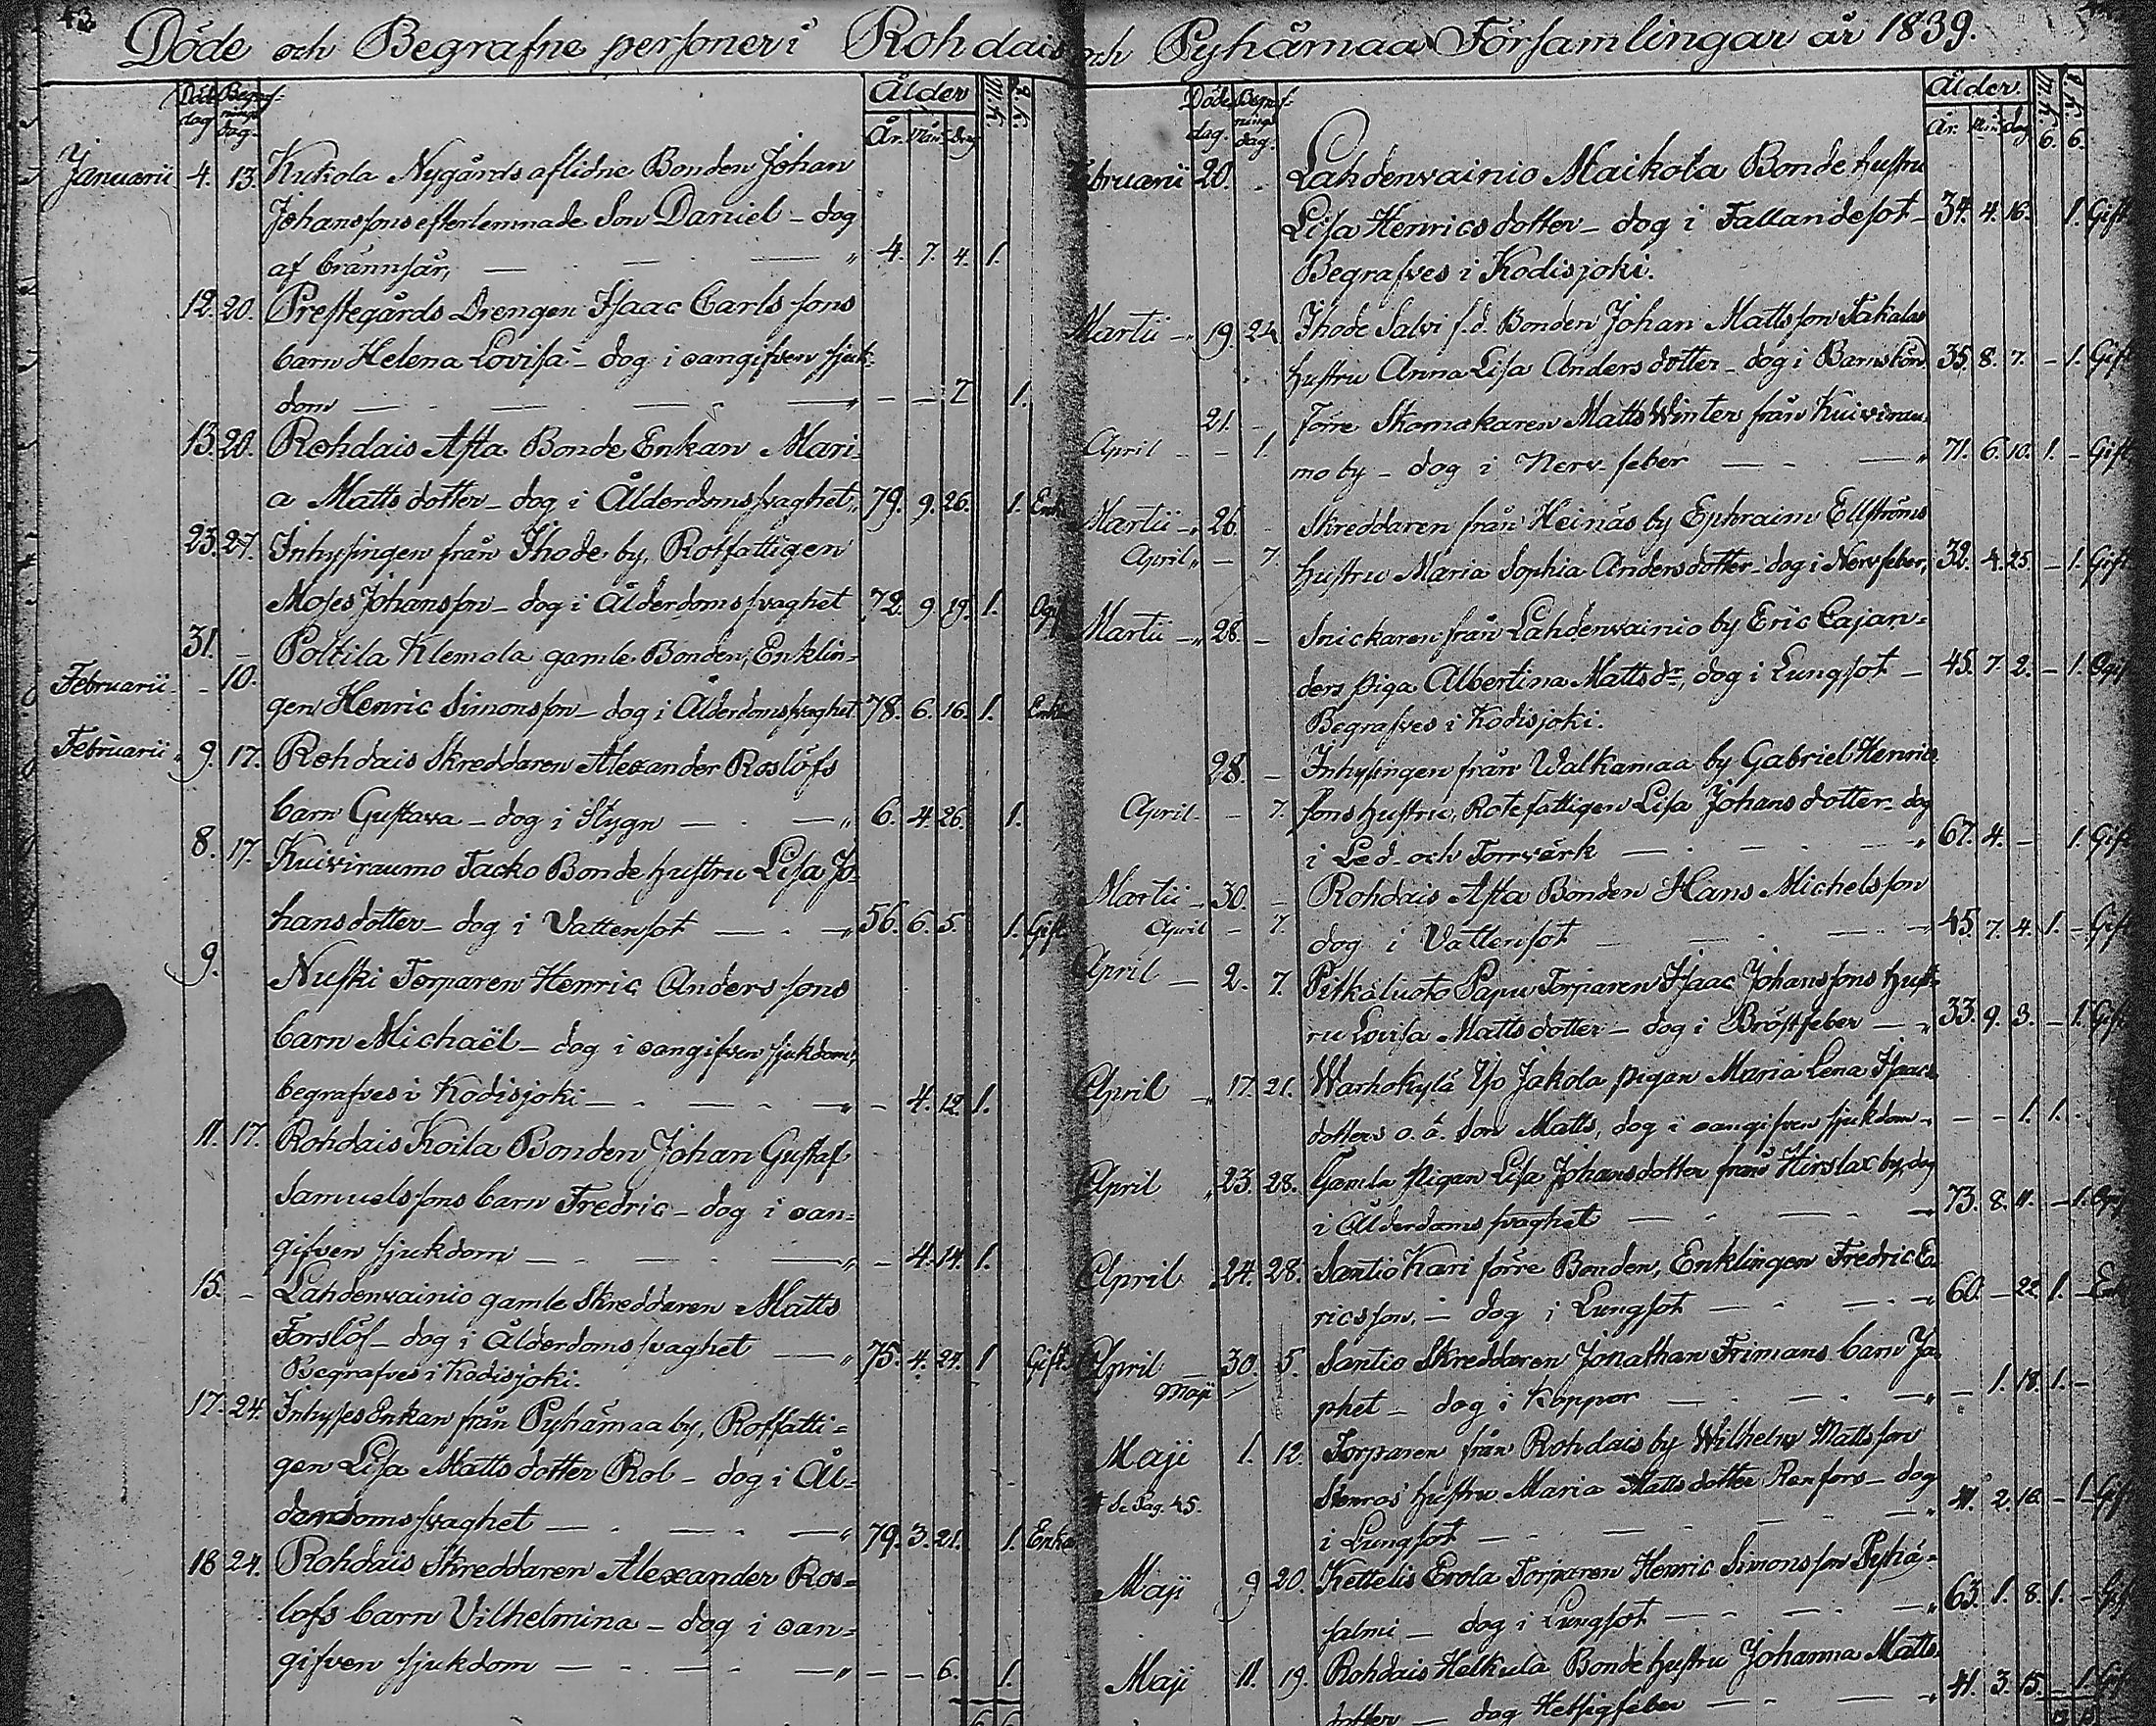 43.
Döde och Begrafne personer i Rohdais och Pyhämaa Församlingar år 1839.
Döde dag Begraf- nings dag. Ålder M.K. Q.K.
År. Mån. dag
Januarii 4. 13. Kukola Nygårds aflidne Bonden Johan
Johanssons efterlemnade Son Daniel - dog
af brännsår, 4. 7. 4. 1.
12. 20. Prestegårds Drengen Isaac Carls sons
barn Helena Lovisa - dog i oangifven sjuk-
dom — — 7 1.
13. 20. Rohdais Asta Bonde Enkan Mari-
a Matts dotter - dog i Ålderdomssvaghet 79. 9. 26. 1. Enk
23. 27. Inhysingen från Ihode by, Rotfattigen
Moses Johansson - dog i Ålderdomssvaghet 72. 9 19. 1. Ogif
31. - Poltila Klemola gamle Bonden, Enklin-
Februarii - 10. gen Henric Simonsson - dog i Ålderdomssvaghet 78. 6. 16. 1. Enkl
Februarii 9. 17. Rohdais Skreddaren Alexander Roslöfs
barn Gustava - dog i Stygn 6. 4. 26. 1.
8. 17. Kuiviraumo Jacko Bonde hustru Lisa Jo-
hansdotter - dog i Vattensot 56. 6. 5. 1. Gift
9. Nuski Torparen Henric Anders sons
barn Michaël - dog i oangifven sjukdom,
begrafves i Kodisjoki - 4. 12 1.
11. 17. Rohdais Koila Bonden Johan Gustaf
Samuelssons barn Fredric - dog i oan-
gifven sjukdom - 4. 14. 1.
15. - Lahdenvainio gamle Skreddaren Matts
Forslöf - dog i Ålderdomssvaghet 75. 4. 24. 1 Gift.
Begrafves i Kodisjoki.
17. 24. Inhyses Enkan från Pyhämaa by, Rotfatti-
gen Lisa Matts dotter Rol - dog i Ål-
derdomssvaghet 79. 3. 21. 1. Enka
18 24. Rohdais Skreddaren Alexander Ros-
löfs barn Vilhelmina - dog i oan-
gifven sjukdom — — 6. 1.
Döde dag. Begraf- nings dag. Ålder. M.K. Q.K.
År. Mån. dag 6. 6.
Februarii 20. Lahdenvainio Maikola Bonde hustru
Lisa Henricsdotter - dog i Fallandesot 34. 4. 16. 1. Gift
Begrafves i Kodisjoki.
Martii 19. 24 Ihode Salvi f.d. Bonden Johan Mattsson Takalas
hustru Anna Lisa Anders dotter - dog i Barnsbörd 35. 8. 7. - 1. Gift
21. - Förre Skomakaren Matts Winter från Kuivirau-
April - 1. mo by - dog i Nerv feber 71. 6. 10. 1. - Gift
Martii 26. - Skreddaren från Heinäs by Ephraim Ellströms
April - 7. hustru Maria Sophia Andersdotter - dog i Nervfeber, 32. 4. 25. - 1. Gift
Martii 28. - Snickaren från Lahdenvainio by Eric Cajan-
ders piga Albertina Matts dr, dog i Lungsot 45. 7. 2. - 1. Ogif
Begrafves i Kodisjoki.
28. - Inhysingen från Walkamaa by Gabriel Henric
April. - 7. sons hustru, Rotefattigen Lisa Johans dotter - dog
i Led- och Torrvärk 67. 4. - 1. Gift
Martii 30. - Rohdais Asta Bonden Hans Michelsson
April - 7. dog i Vattensot 45. 7. 4. 1. - Gift
April 2. 7. Pitkäluoto Papu Torparen Isaac Johanssons hust-
ru Lovisa Mattsdotter - dog i Bröstfeber 33. 9. 3. - 1. Gift
April 17. 21. Warhokylä Yjo Jakola pigan Maria Lena Isaacs
dotters o.ä. Son Matts, dog i oangifven sjukdom - - 1. 1.
April 23. 28. Gamla Pigan Lisa Johansdotter från Hirslax by, dog
i Ålderdomssvaghet 73. 8. 11. - 1. Ogif
April 24. 28. Santio Kari förre Bonden, Enklingen Fredric E-
ricsson, - dog i Lungsot 60. - 22 1. - Enk
April 30. 5. Santio Skreddaren Jonathan Frimans barn Ja-
Maji phet - dog i Koppor - 1. 18. 1. -
Maji 1. 12. Torparen från Rohdais by Wilhelm Mattsson
Se Pag. 45. Stenros' hustru Maria Mattsdotter Renfors - dog
i Lungsot 41. 2. 16. - 1. Gif
Maji 9 20. Kettelis Erola Torparen Henric Simonsson Pyhä-
salmi - dog i Lungsot 63. 1. 8. 1. - Gif
Maji 11. 19. Rohdais Helkula Bonde hustru Johanna Matts
dotter - dog Hetsigfeber 41. 3. 15. - 1. Gif